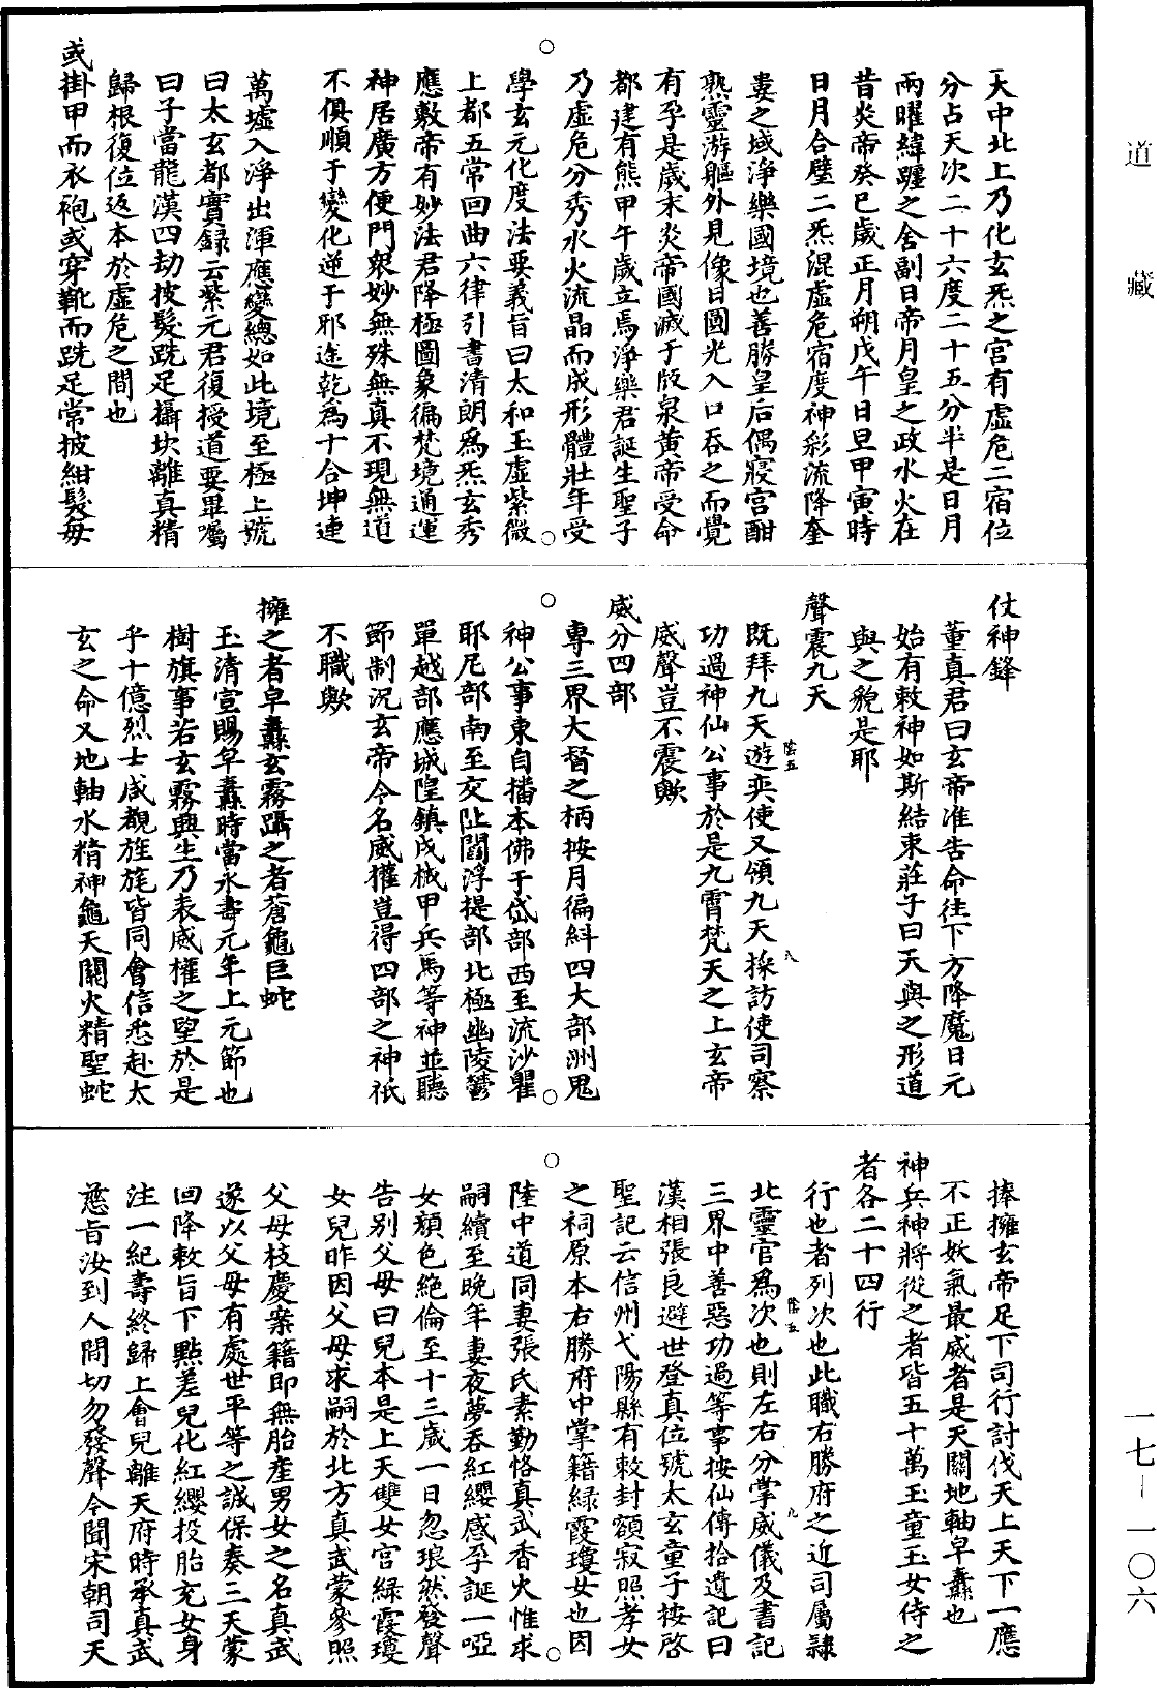 道藏
一七—一〇六
天中北上乃化玄炁之宮有虛危二宿位
分占天次二十六度二十五分半是日月
兩曜緯躔之舍副日帝月皇之政水火在
昔炎帝癸巳歲正月朔戊午日旦甲寅時
日月合璧二炁混虛危宿度神彩流降奎
婁之域淨樂國境也善勝皇后偶寢宮酣
熟靈游軀外見像日圓光入口吞之而覺
有孕是歲末炎帝國滅于版泉黃帝受命
都建有熊甲午歲立焉淨樂君誕生聖子
乃虛危分秀水火流晶而成形體壯年受
學玄元化度法要義旨曰太和玉虛紫微
上都五常回曲六律引書清朗為炁玄秀
應數帝有妙法君降極圖象徧梵境通運
神居廣方便門衆妙無殊無真不現無道
不俱順于變化逆于邪途乾為十合坤連
萬墟入淨出渾應變總如此境至極上號
曰太玄都實録云紫元君復授道要畢囑
曰子當龍漢四劫披髮跣足攝坎離真精
歸根復位返本於虛危之間也
或掛甲而衣袍或穿靴而跣足常披紺髮每
仗神鋒
董真君曰玄帝准告命往下方降魔日元
始有敕神如斯結束莊子曰天與之形道
與之貌是耶
聲震九天
既拜九天遊奕使又領九天採訪使司察
陰五
八
功過神仙公事於是九霄梵天之上玄帝
威聲豈不震歟
威分四部
專三界大督之柄按月徧糾四大部洲鬼
神公事東自播本佛于岱部西至流沙瞿
耶尼部南至交阯閻浮提部北極幽陵鬱
單越部應城隍鎮戍械甲兵馬等神並聽
節制況玄帝令名威權豈得四部之神祇
不職歟
擁之者皁纛玄霧躡之者蒼龜巨蛇
玉清宣賜皁纛時當永壽元年上元節也
樹旗事若玄霧興生乃表威權之望於是
乎十億烈士咸覩旌旄皆同會信悉赴太
玄之命又地軸水精神龜天關火精聖蛇
捧擁玄帝足下司行討伐天上天下一應
不正妖氣最威者是天關地軸皁纛也
神兵神將從之者皆五十萬玉童玉女侍之
者各二十四行
行也者列次也此職右勝府之近司屬隸
陰五
九
北靈官為次也則左右分掌威儀及書記
三界中善惡功過等事按仙傳拾遺記曰
漢相張良避世登真位號太玄童子按啓
聖記云信州弋陽縣有敕封額寂照孝女
之祠原本右勝府中掌籍緑霞瓊女也因
陸中道同妻張氏素勤恪真武香火惟求
嗣續至晚年妻夜夢吞紅纓感孕誕一啞
女顏色絶倫至十三歲一日忽琅然發聲
告別父母曰兒本是上天雙女宮緑霞瓊
女兒昨因父母求嗣於北方真武蒙參照
父母枝慶案籍即無胎産男女之名真武
遂以父母有處世平等之誠保奏三天蒙
回降敕旨下點差兒化紅纓投胎充女身
注一紀壽終歸上會兒離天府時承真武
慈旨汝到人間切勿發聲今聞宋朝司天